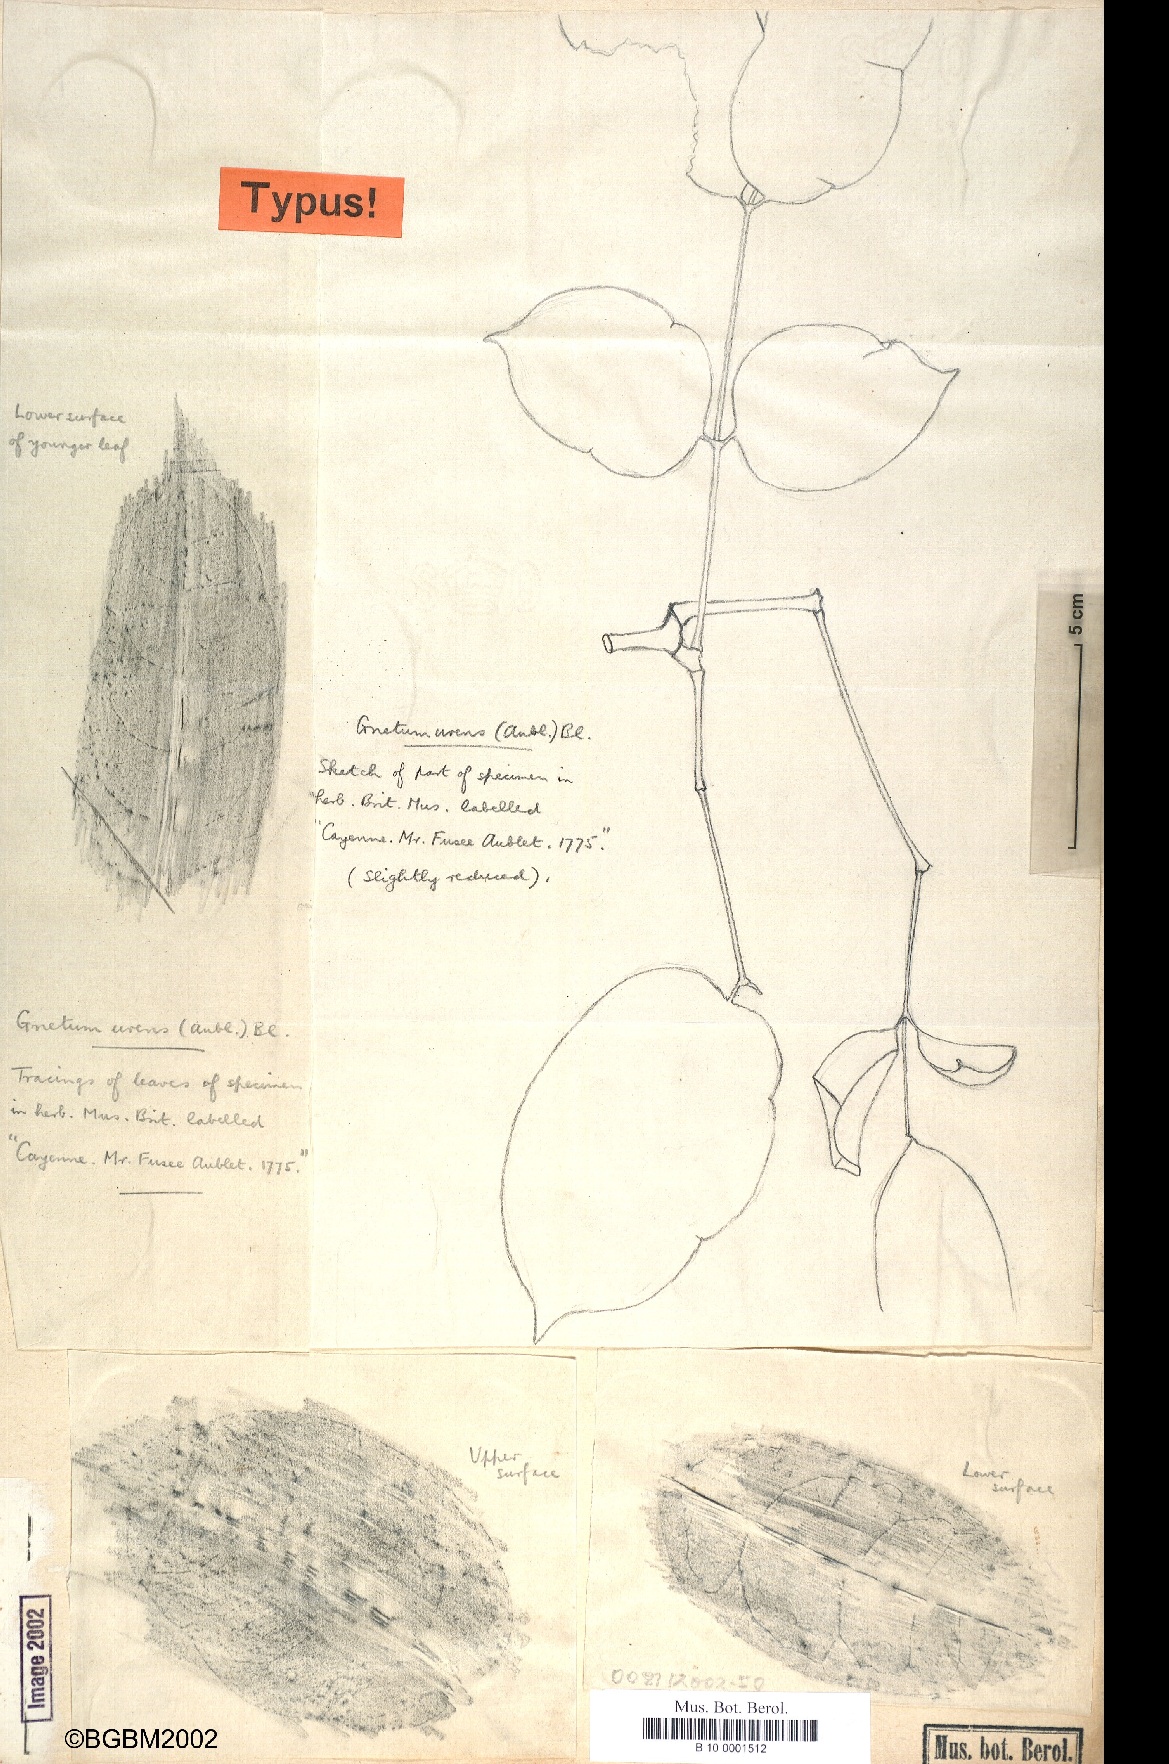 Typus!
Lower surface
of younger leaf
5 cm
Gnetum urens (Aubl.) Bl.
Sketch of part of specimen in
herb. Brit. Mus. labelled
"Cayenne. Mr. Fusee Aublet. 1775."
(slightly reduced).
Gnetum urens (Aubl.) Bl.
Tracings of leaves of specimen
in herb. Mus. Brit. labelled
"Cayenne. Mr. Fusee Aublet. 1775."
Upper
surface
Lower
surface
Image 2002
Mus. Bot. Berol.
B 10 0001512
Mus. bot. Berol.
©BGBM2002